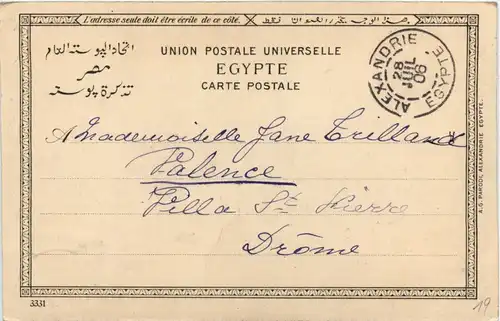 L'adresse seule doit être écrite de ce côté.
اتحاد البوسته العام
مصر
تذكرة بوسته
UNION POSTALE UNIVERSELLE
EGYPTE
CARTE POSTALE
ALEXANDRIE
28
JUIL
06
EGYPTE
A Mademoiselle Jane
Valence
Villa St Pierre
Drôme
A.G. PARODI, ALEXANDRIE EGYPTE.
3331
19